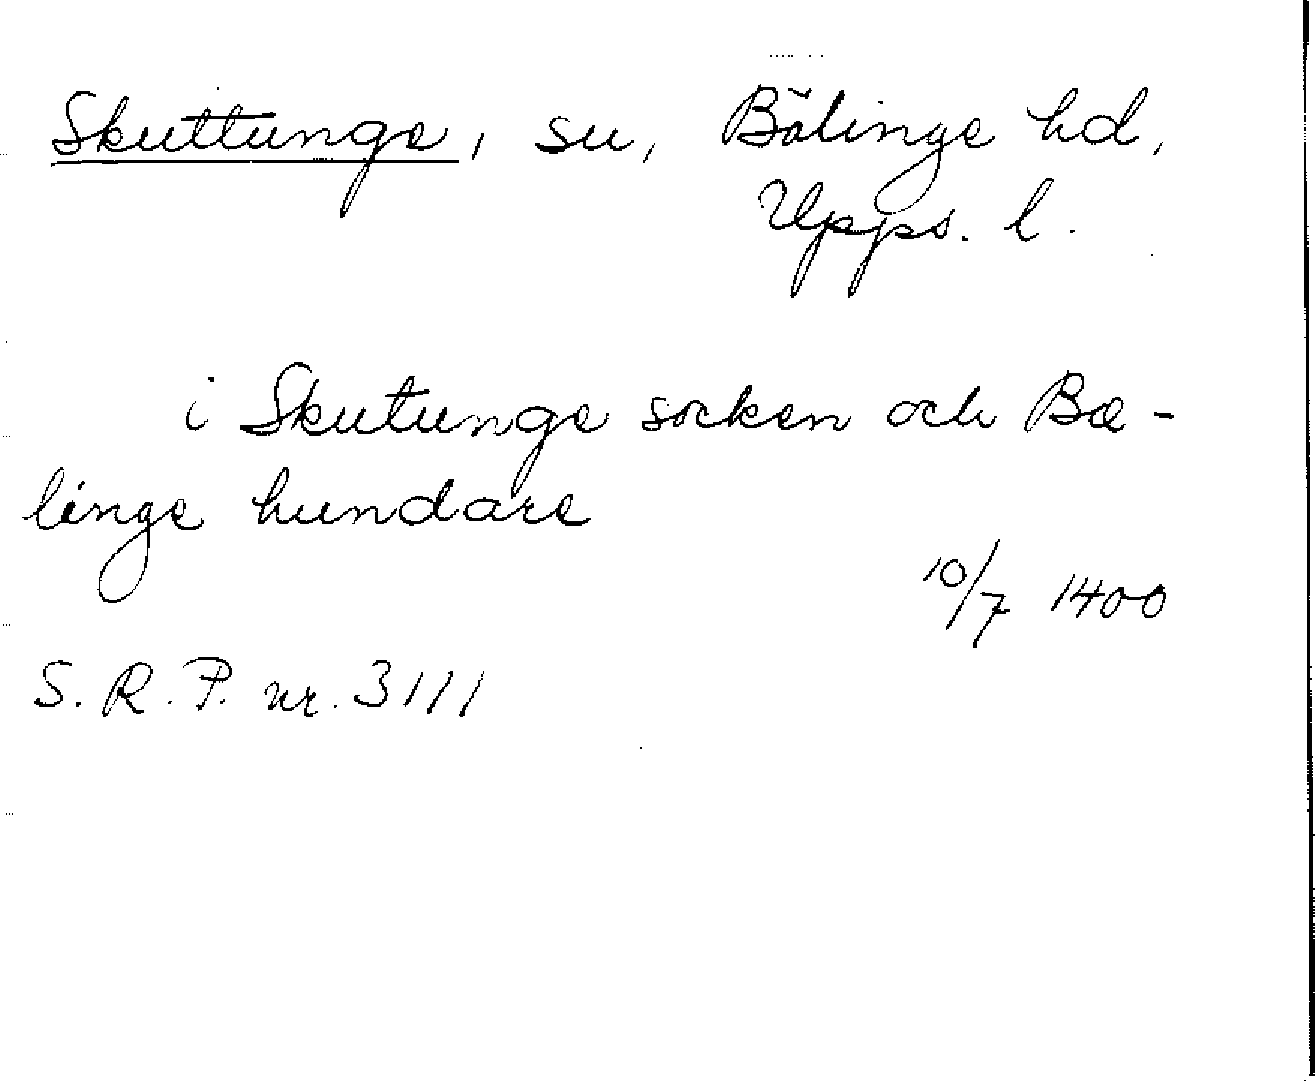 Skuttunge, sn, Bälinge hd,
Upps. l.
i Skutunge socken och Bæ-
linge hundare
10/7 1400
S. R. P. nr. 3111